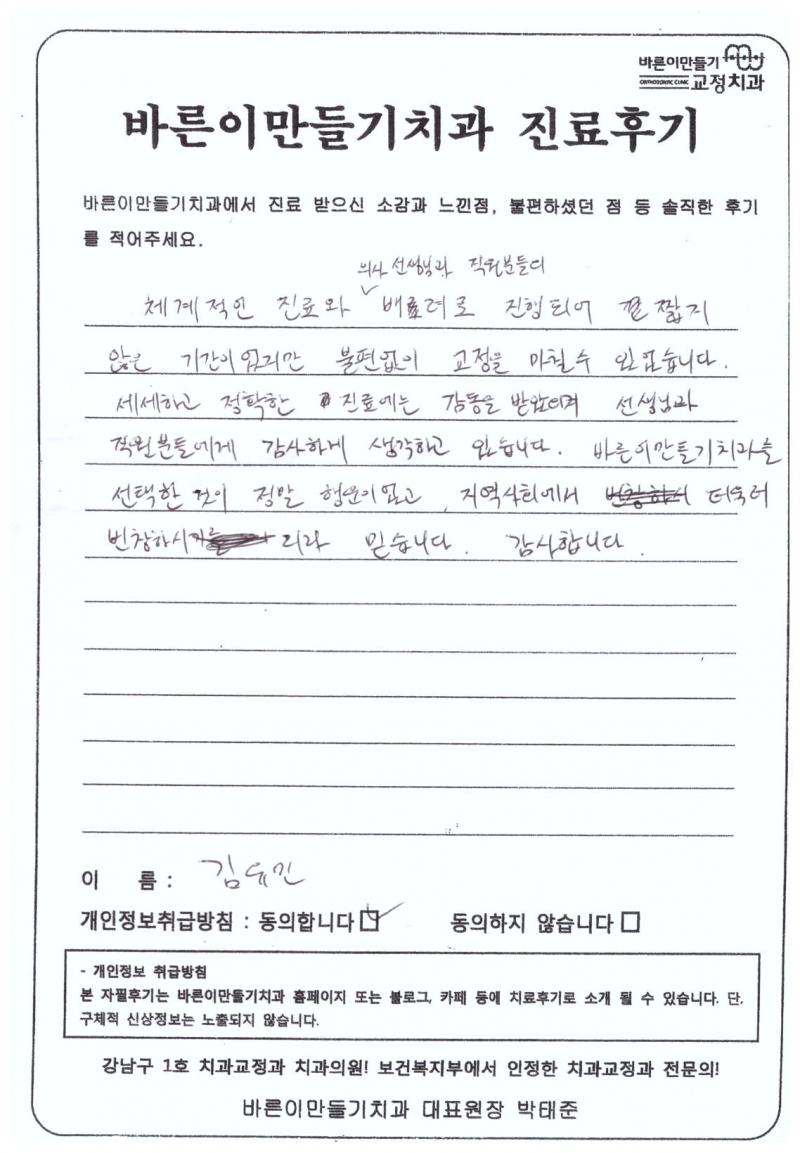 바른이만들기
ORTHODONTIC CLINIC 교정치과
바른이만들기치과 진료후기
바른이만들기치과에서 진료 받으신 소감과 느낀점, 불편하셨던 점 등 솔직한 후기
를 적어주세요.
의사 선생님과 직원분들의
체계적인 진료와 배료려로 진행되어 짧지
않은 기간이였지만 불편없이 교정을 마칠수 있었습니다.
세세하고 정확한 진료에는 감동을 받았으며 선생님과
직원분들에게 감사하게 생각하고 있습니다. 바른이만들기치과를
선택한 것이 정말 행운이였고, 지역사회에서 더욱더
번창하시리라 믿습니다. 감사합니다.
이 름 : 김유진
개인정보취급방침 : 동의합니다 동의하지 않습니다
- 개인정보 취급방침
본 자필후기는 바른이만들기치과 홈페이지 또는 블로그, 카페 등에 치료후기로 소개 될 수 있습니다. 단,
구체적 신상정보는 노출되지 않습니다.
강남구 1호 치과교정과 치과의원! 보건복지부에서 인정한 치과교정과 전문의!
바른이만들기치과 대표원장 박태준